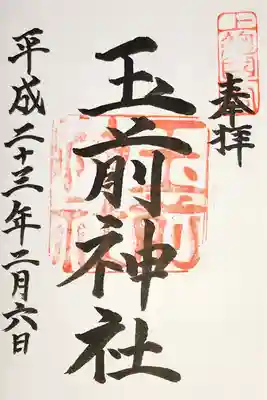 奉拝
玉前神社
平成二十三年二月六日